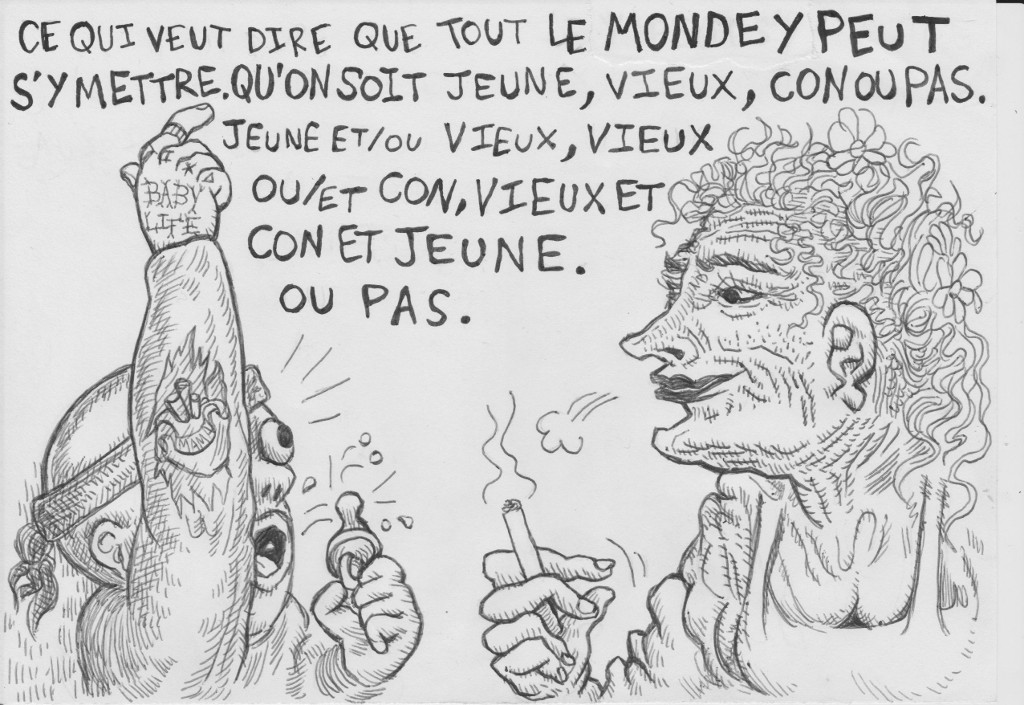 CE QUI VEUT DIRE QUE TOUT LE MONDE Y PEUT
S'Y METTRE. QU'ON SOIT JEUNE, VIEUX, CON OU PAS.
JEUNE ET/OU VIEUX, VIEUX
OU/ET CON, VIEUX ET
CON ET JEUNE.
OU PAS.
BABY
LIFE